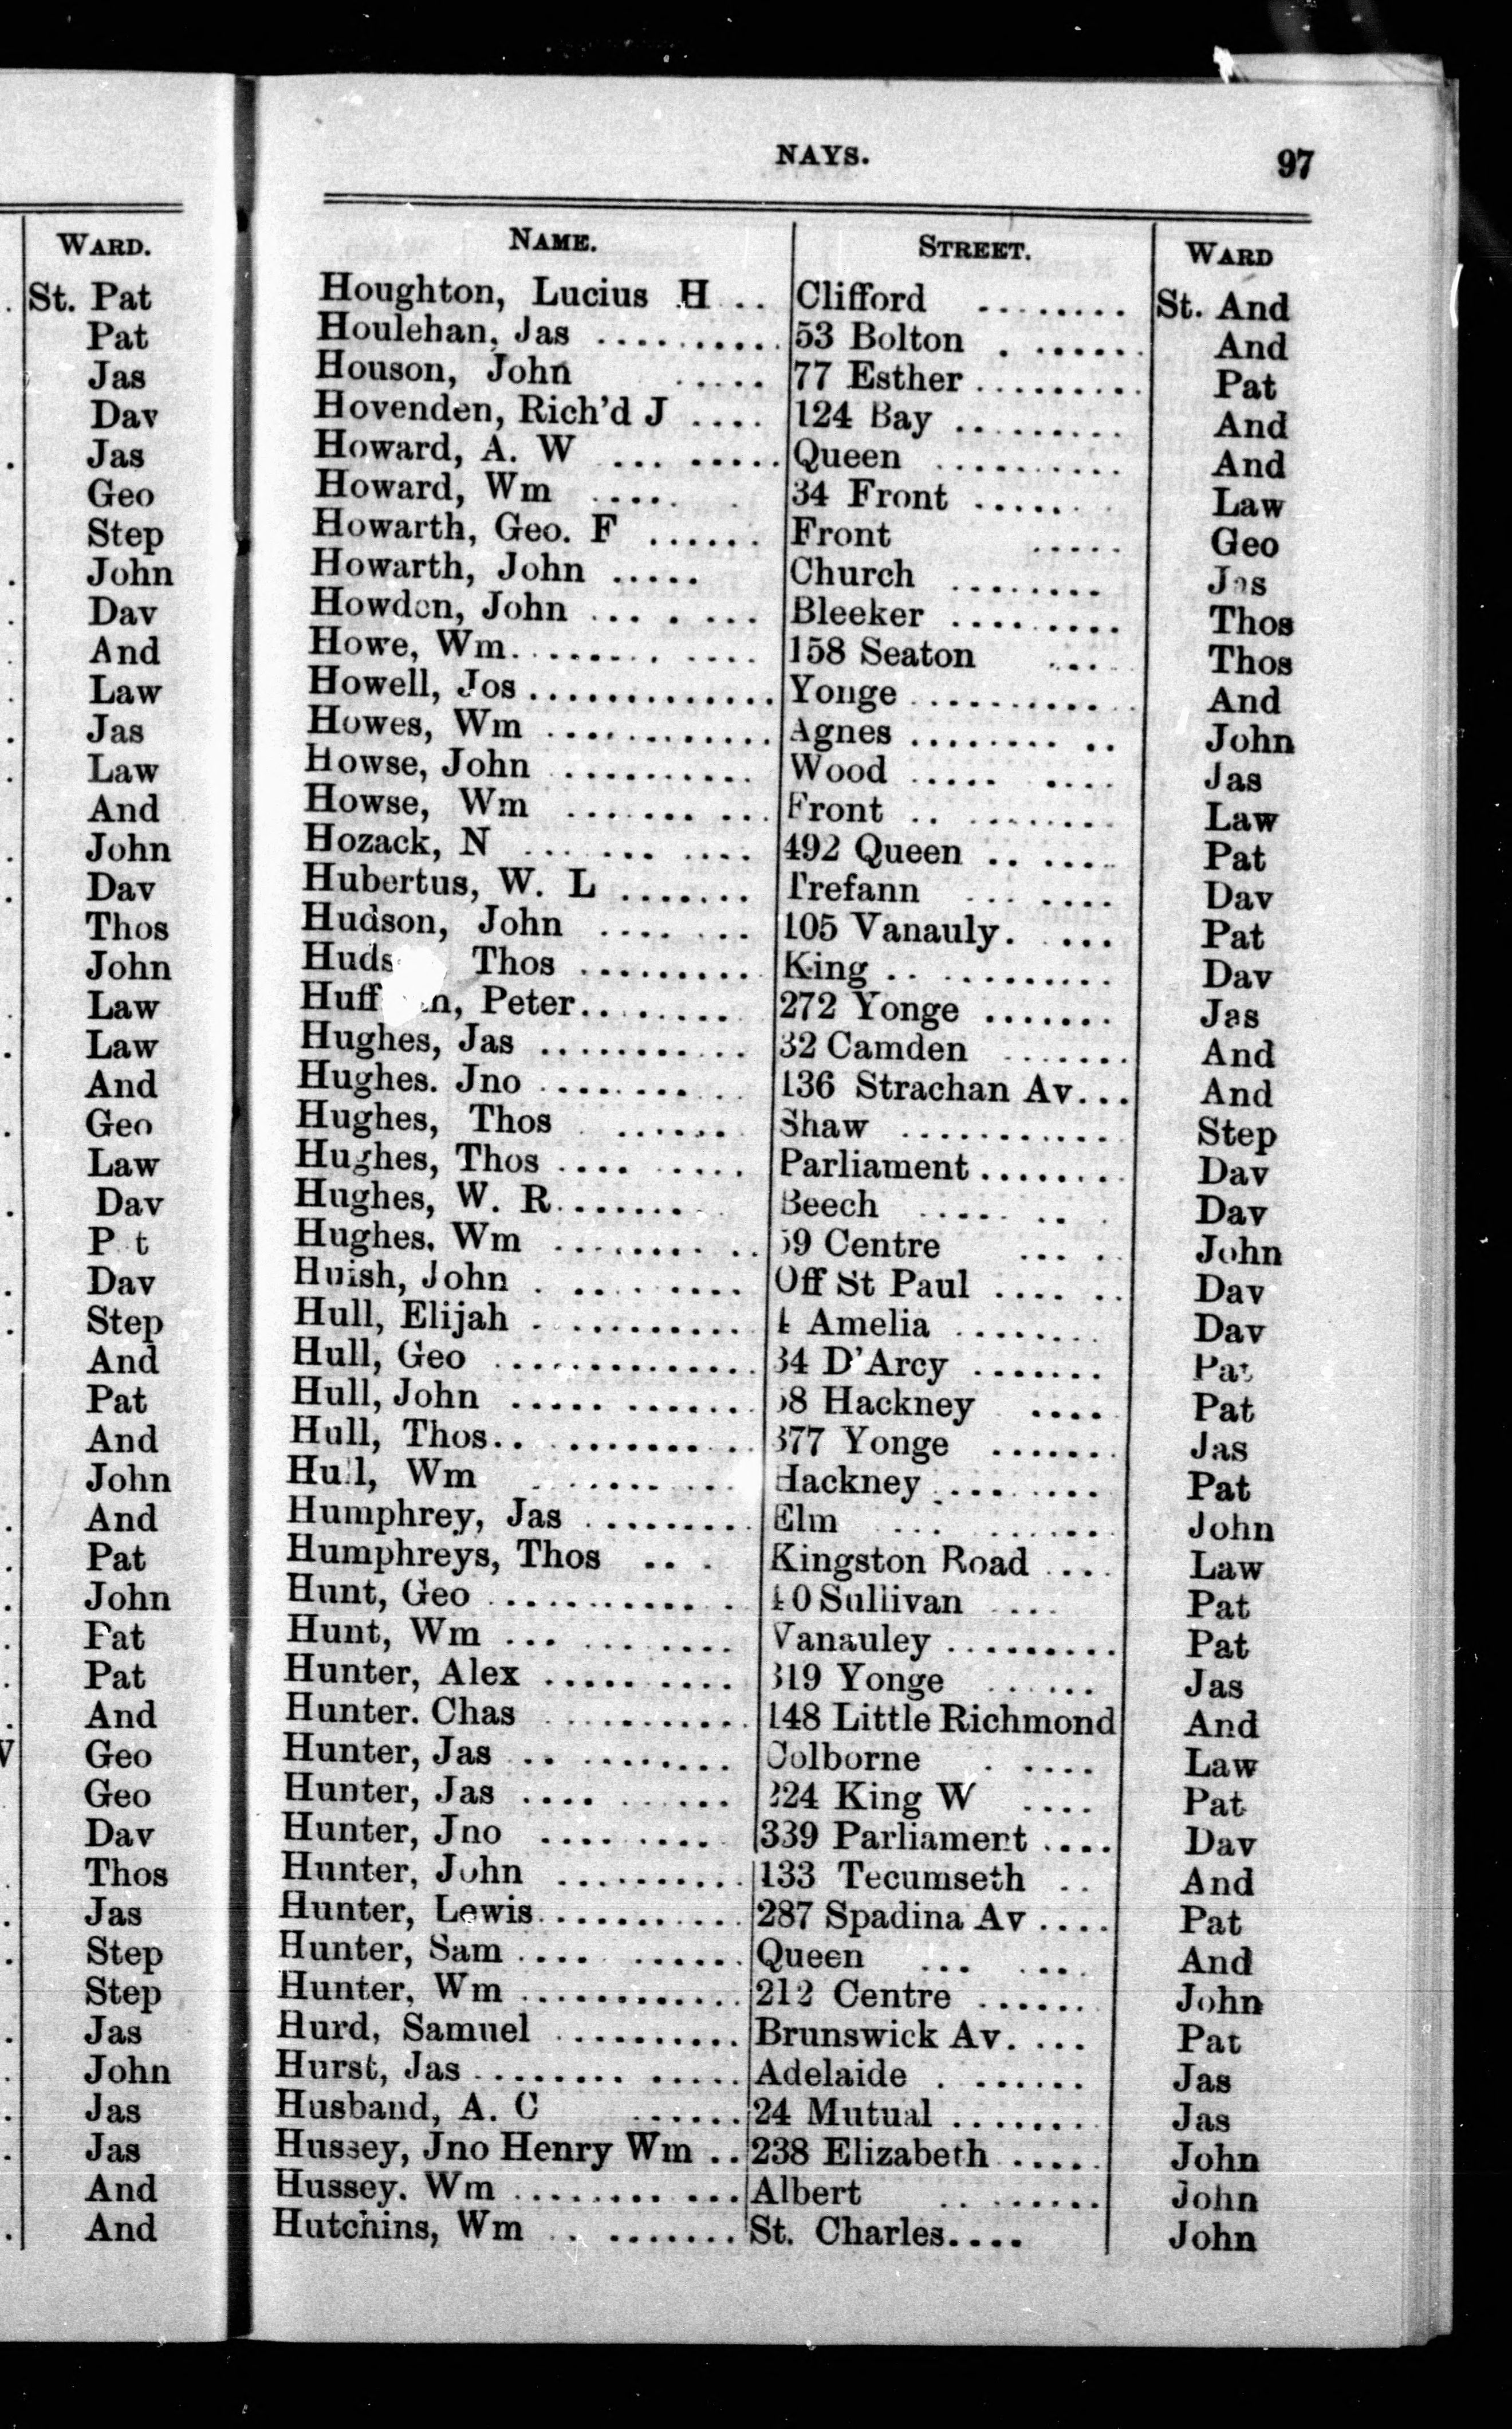 WARD.
St. Pat
Pat
Jas
Dav
Jas
Geo
Step
John
Dav
And
Law
Jas
Law
And
John
Dav
Thos
John
Law
Law
And
Geo
Law
Dav
P t
Dav
Step
And
Pat
And
John
And
Pat
John
Pat
Pat
And
Geo
Geo
Dav
Thos
Jas
Step
Step
Jas
John
Jas
Jas
And
And
NAYS. 97
NAME. STREET. WARD
Houghton, Lucius H .. Clifford ........ St. And
Houlehan, Jas .......... 53 Bolton . ...... And
Houson, John ..... 77 Esther ......... Pat
Hovenden, Rich'd J .... 124 Bay ......... And
Howard, A. W ... ..... Queen .......... And
Howard, Wm .... 34 Front ...... Law
Howarth, Geo. F ...... Front ..... Geo
Howarth, John ..... Church ........ Jas
Howden, John ... . ... Bleeker ......... Thos
Howe, Wm......... .... 158 Seaton .... Thos
Howell, Jos ............. Yonge ........... And
Howes, Wm ............ Agnes ........ .. John
Howse, John .......... Wood ..... .... Jas
Howse, Wm ....... ... Front .. ........ Law
Hozack, N ....... .... 492 Queen .. .... Pat
Hubertus, W. L ....... Trefann ... .... Dav
Hudson, John .... ... 105 Vanauly. ... Pat
Huds Thos ......... King .. ......... Dav
Huff n, Peter........ 272 Yonge ....... Jas
Hughes, Jas ........... 32 Camden ....... And
Hughes. Jno ......... 136 Strachan Av... And
Hughes, Thos ...... Shaw ........... Step
Hughes, Thos .... ..... Parliament........ Dav
Hughes, W. R....... Beech ..... .. Dav
Hughes. Wm ........ .. 9 Centre ... . John
Huish, John . ........ Off St Paul .... .. Dav
Hull, Elijah ........... 4 Amelia ........ Dav
Hull, Geo .............. 34 D'Arcy ....... Pat
Hull, John ..... ....... 8 Hackney .... Pat
Hull, Thos.. .......... 377 Yonge ....... Jas
Hull, Wm ....... ... Hackney ......... Pat
Humphrey, Jas ......... Elm ... ...... John
Humphreys, Thos .. . Kingston Road .... Law
Hunt, Geo ........... . 40 Sullivan .... Pat
Hunt, Wm ... ........ Vanauley ......... Pat
Hunter, Alex .......... 319 Yonge ...... Jas
Hunter. Chas ........... 148 Little Richmond And
Hunter, Jas .. ........ Colborne . .... Law
Hunter, Jas .... ...... 224 King W .... Pat
Hunter, Jno .... ..... 339 Parliament .... Dav
Hunter, John .......... 133 Tecumseth .. And
Hunter, Lewis........... 287 Spadina Av .... Pat
Hunter, Sam .... ...... Queen ... .... And
Hunter, Wm ............ 212 Centre ...... John
Hurd, Samuel .......... Brunswick Av. ... Pat
Hurst, Jas ........ ..... Adelaide . ...... Jas
Husband, A. C ...... 24 Mutual ........ Jas
Hussey, Jno Henry Wm .. 238 Elizabeth ..... John
Hussey. Wm ......... ... Albert .. ...... John
Hutchins, Wm .. ....... St. Charles.... John